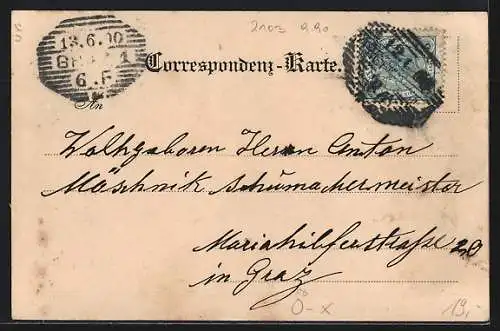 2103 9.90
13.6.00
GRAZ 1
6.F
Correspondenz-Karte.
An
Wolhgeboren Herrn Anton
Möschnik Schumachermeister
Mariahilferstraße 20
in Graz
O-X
19,-